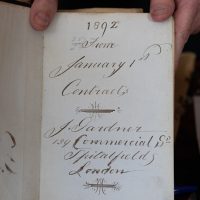 1892
From
January 1st
Contracts
J. Gardner
134 Commercial St
Spitalfields
London